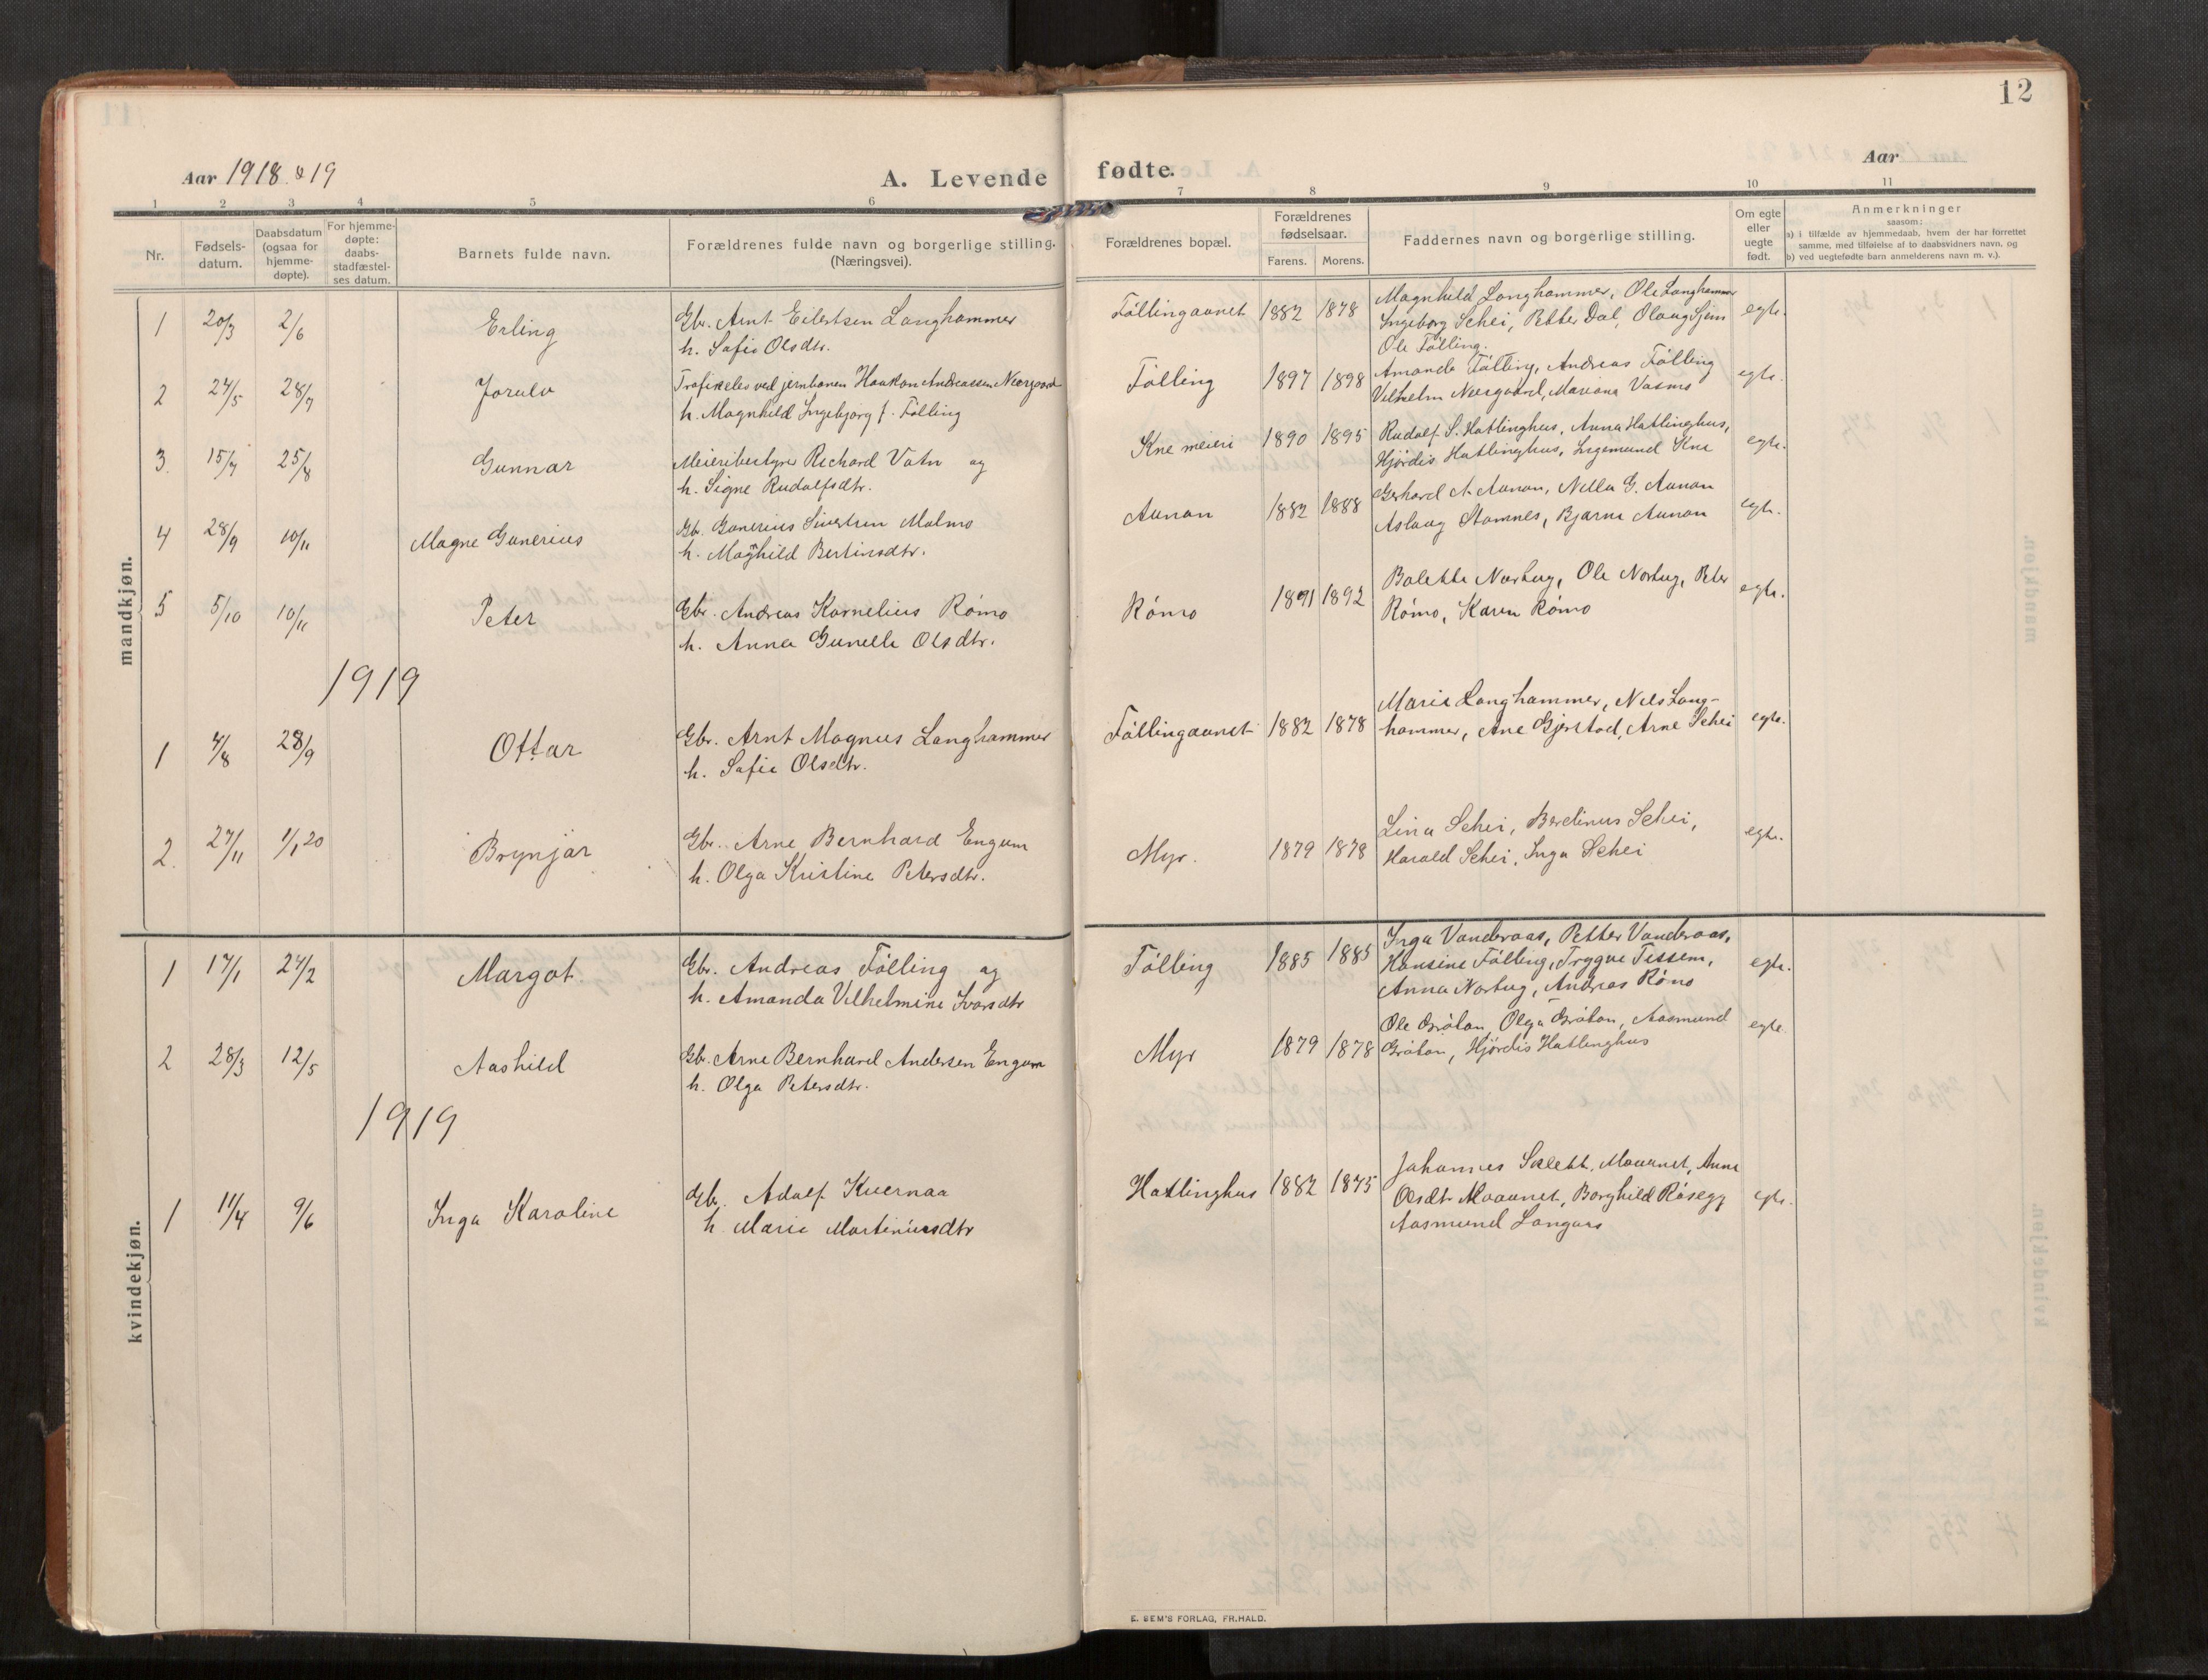 12
Aar 1918 & 19
A. Levende fødte.
Aar
1 2 3 4 5 6 7 8 9 10 11
Nr.
Fødsels-
datum.
Daabsdatum
(ogsaa for
hjemme-
døpte).
For hjemme-
døpte:
daabs-
stadfæstel-
ses datum.
Barnets fulde navn.
Forældrenes fulde navn og borgerlige stilling.
(Næringsvei).
Forældrenes bopæl.
Forældrenes
fødselsaar.
Farens. Morens.
Faddernes navn og borgerlige stilling.
Om egte
eller
uegte
født.
Anmerkninger
saasom:
a) i tilfælde av hjemmedaab, hvem der har forrettet
samme, med tilføielse af to daabsvidners navn, og
b) ved uegtefødte barn anmelderens navn m. v.).
mandkjøn.
1 20/3 2/6 Erling
Gbr. Arnt Eilertsen Langhammer
h. Sofie Olsdtr.
Föllingaunet 1882 1878
Magnhild Langhammer, Ole Langhammer
Ingeborg Schei, Petter Dal, Olaug Sjem
Ole Fölling.
egte.
2 24/5 28/7 Jorulv
Trafikelev ved jernbanen Haakon Andreassen Neergaard
h. Magnhild Ingebjørg f. Fölling
Fölling 1897 1898
Amanda Fölling, Andreas Fölling
Vilhelm Neergaard, Mariana
egte.
3. 15/7 25/8 Gunnar
Meieribestyrer Richard Vatn og
h. Signe Rudolfsdtr.
Kne meieri 1890 1895
Rudolf S. Hatlinghus, Anna Hatlinghus,
Hjördis Hatlinghus, Ingemund Kne
egte.
4 28/9 10/11 Magne Gunerius
Gb. Gunerius Sivertsen Malmo
h. Magnhild Bertinsdtr.
Aunan 1882 1888
Gerhard A. Aunan, Nella G. Aunan
Aslaug Stamnes, Bjarne Aunan
egte.
5 5/10 10/11 Peter
Gbr. Andreas Kornelius Römo
h. Anna Gunelle Olsdtr.
Römo 1891 1892
Bolette Nortug, Ole Nortug, Peter
Römo, Karen Römo
egte.
1919
1 4/8 28/9 Ottar
Gbr. Arnt Magnus Langhammer
h. Sofie Olsdtr.
Föllingaunet 1882 1878
Marie Langhammer, Nils Lang-
hammer, Ane Gjerstad, Arne Schei
egte.
2. 27/11 1/1 20 Brynjar
Gbr. Arne Bernhard Engum
h. Olga Kristine Petersdtr.
Myr. 1879 1878
Lina Schei, Berdinus Schei,
Harald Schei, Inga Schei
egte.
kvindekjøn.
1 17/1 24/2 Margot
Gbr. Andreas Fölling og
h. Amanda Vilhelmine Ivarsdtr
Fölling 1885 1885
Inga Vanderaas, Petter Vanderaas,
Hansine Fölling, Trygve Tessem,
Anna Nortug, Andreas Römo
egte.
2 28/3 12/5 Aashild
Gb. Arne Bernhard Andersen Engum
h. Olga Petersdtr.
Myr 1879 1878
Ole Gråtan, Olga Gråtan, Aasmund
Gråtan, Hjördis Hatlinghus
egte
1919
1 11/4 9/6 Inga Karoline
Gb. Adolf Kvernaa
h. Marie Martiniusdtr
Hatlinghus 1882 1875
Johannes Sklett, Moaunet, Anne
Olsdtr Moaunet, Borghild Rösegg
Aasmund Langaas
egte.
E. SEM'S FORLAG, FR.HALD.